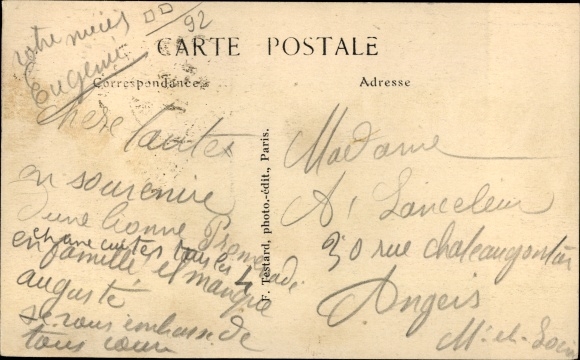 votre nièce
Eugenie
92
CARTE POSTALE
Correspondance
Adresse
Chère Tante
en souvenire
d'une bonne Promenade
en famille et
auguste
je vous embrasse de
tous cœur
F. Testard, photo.-édit., Paris.
Madame
A. Lanceleur
30 rue chateaugontier
Angers
M.-et-Loire